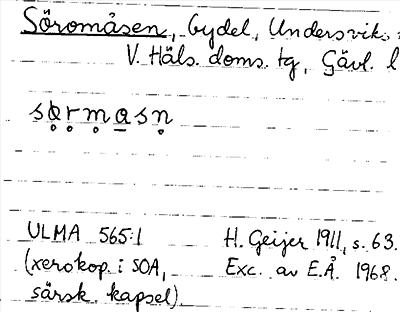 Söromåsen, bydel, Undersviks
V. Häls. doms. tg, Gävl. l
sörmasn
ULMA 565:1 H. Geijer 1911, s. 63.
(xerokop. i SOA, Exc. av E.Å. 1968.
särsk. kapsel)